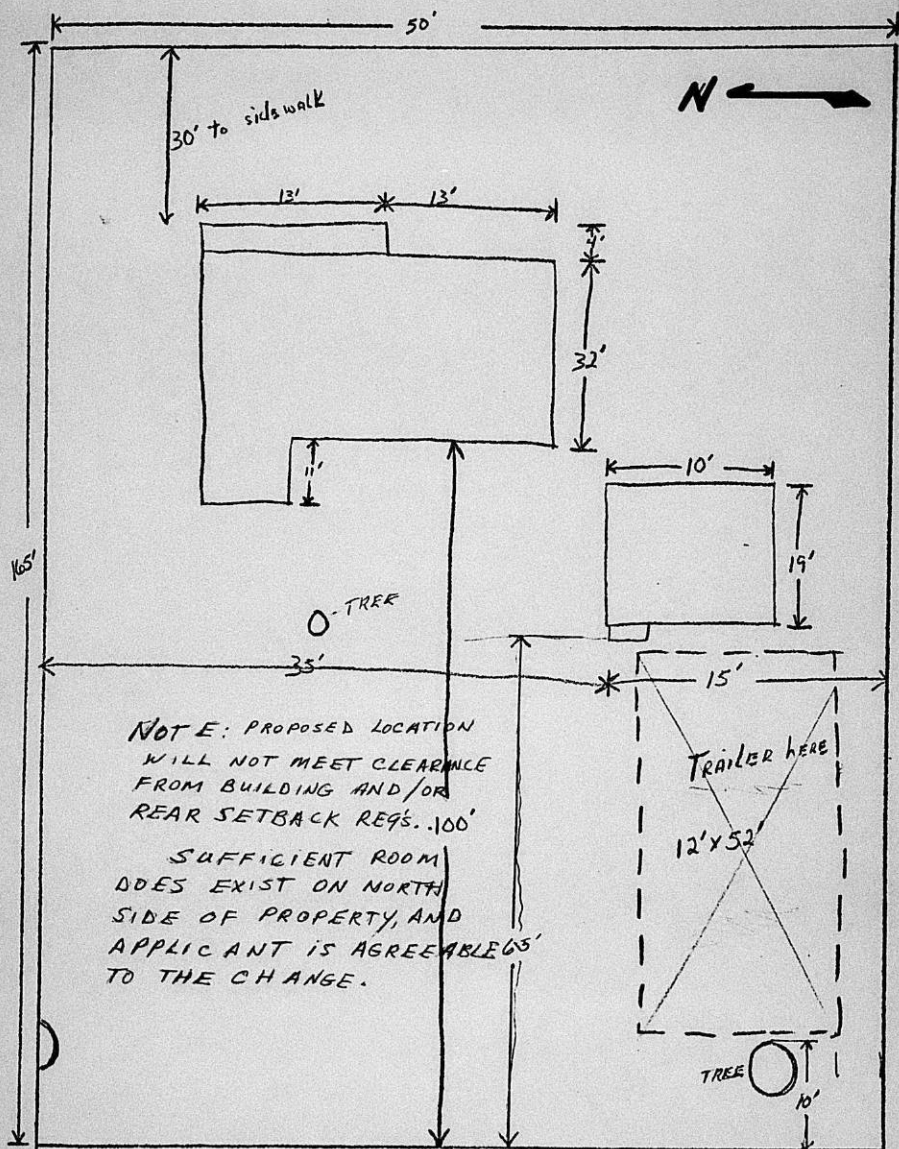 50'
N
30' to sidewalk
13'
13'
4'
32'
11'
10'
19'
165'
TREE
35'
15'
NOTE: PROPOSED LOCATION
WILL NOT MEET CLEARANCE
FROM BUILDING AND/OR
REAR SETBACK REG'S.
100'
SUFFICIENT ROOM
DOES EXIST ON NORTH
SIDE OF PROPERTY, AND
APPLICANT IS AGREEABLE
TO THE CHANGE.
65'
TRAILER HERE
12' x 52'
TREE
10'